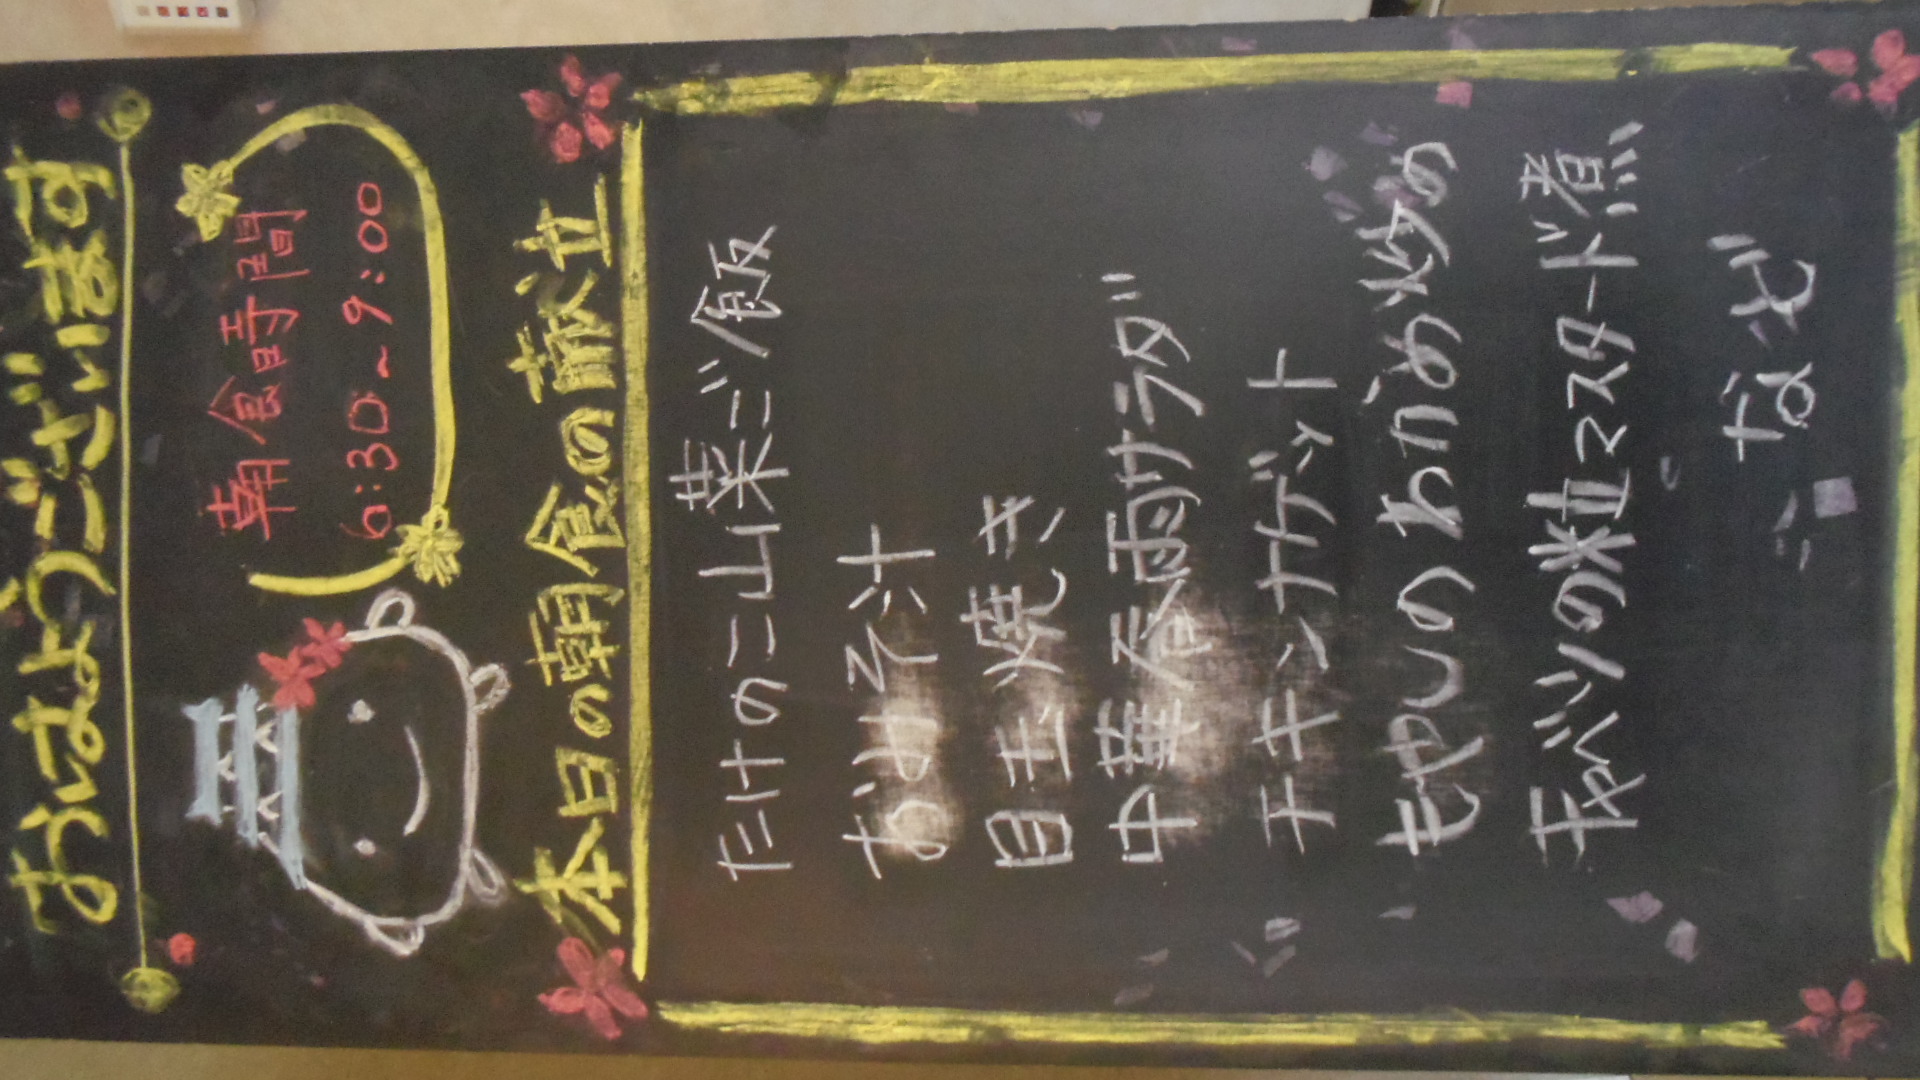 おはようございます
朝食時間
6:30~9:00
本日の朝食の献立
たけのこ山菜ご飯
おみそ汁
目玉焼き
中華春雨サラダ
チキンナゲット
もやしのわかめ炒め
キャベツの粒マスタード煮
など